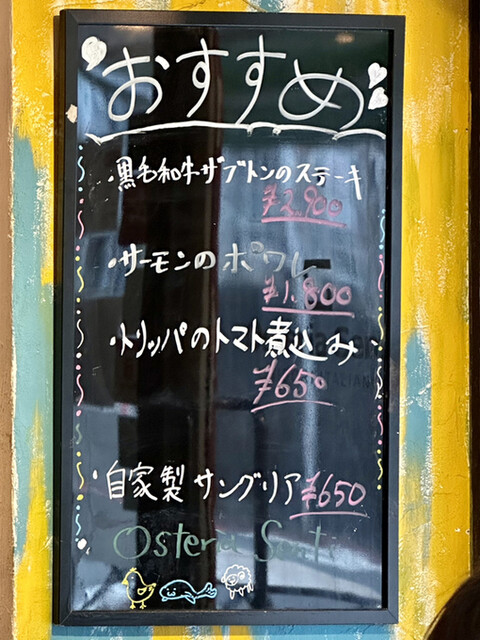 おすすめ
・黒毛和牛ザブトンのステーキ
¥2,900
・サーモンのポワレ
¥1,800
・トリッパのトマト煮込み
¥650
・自家製サングリア ¥650
Osteria